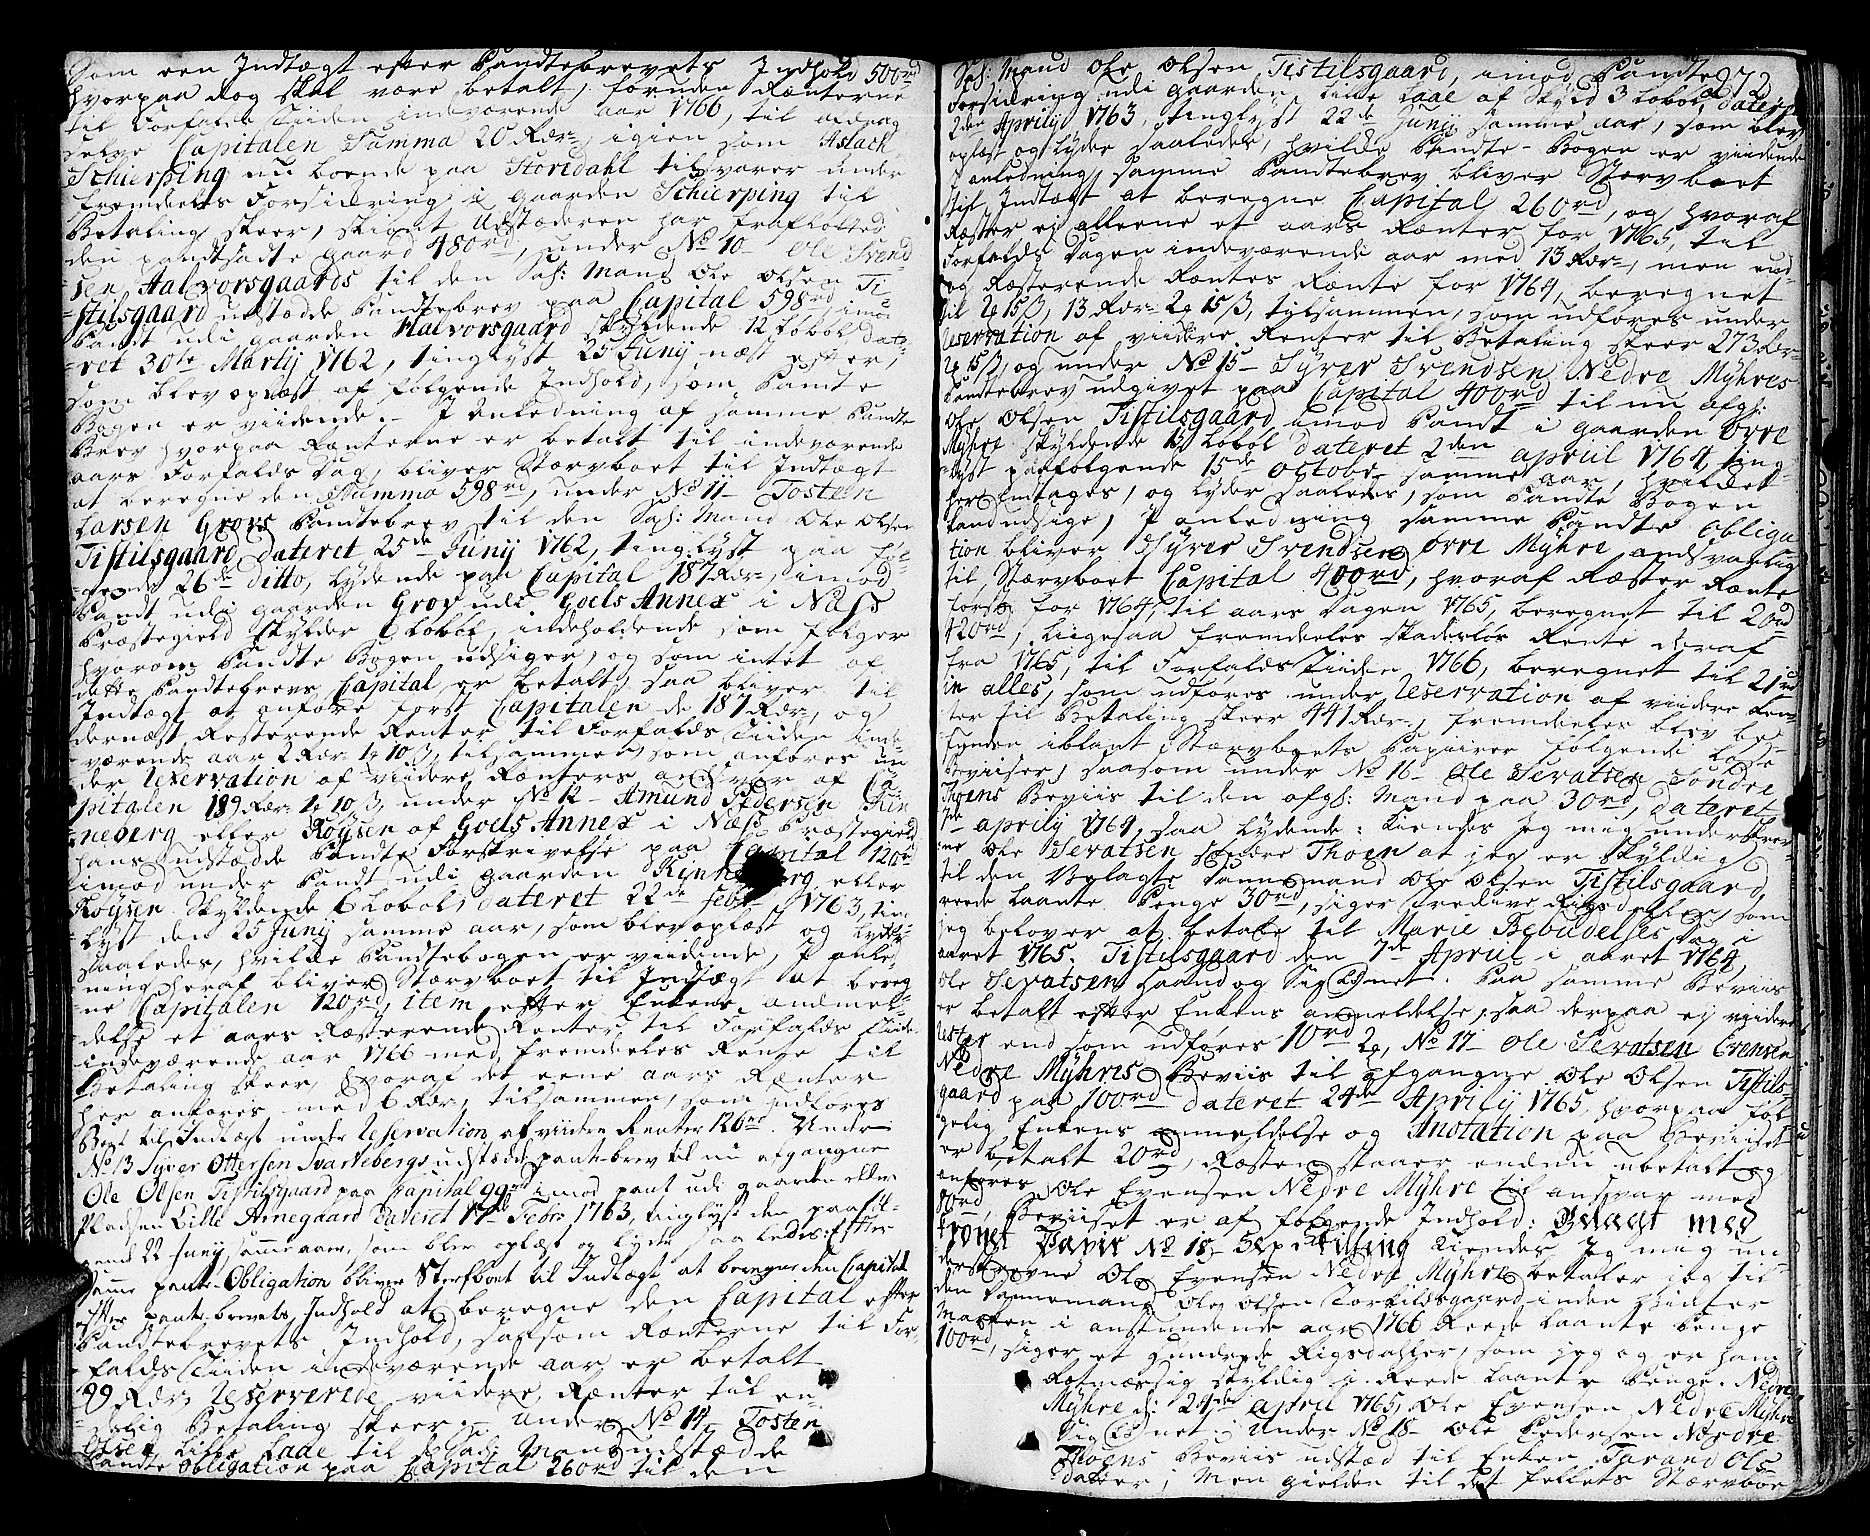 Som een Indtægt efter Pandtebrevets Indhold 500rd
hvorpaa dog skal være betalt, foruden Rænterne
til Forfalds Tiiden indeværende aar 1766, til afdrag
selve Capitalen Summa 20 Rdr, igien som Aslach
Schierping nu boende paa Storedahl tilsvarer under
fremdeeles Forsickring i gaarden Schierping til
Betaling skeer, skiønt Udstæderen har frafløtted
den pandtsatte gaard 480rd, under No 10 Ole Svend
sen Halvorsgaards til den Sal: Mand Ole Olsen Ti-
stilsgaard udstædde Pandtebrev paa Capital 598rd, imod
Pandt udi gaarden Halvorsgaard skyldende 12 Løbol Date-
ret 30te Martij 1762, tinglyst 25 Junij næst efter,
som blev oplæst af følgende Indhold, som Pandte
Bogen er viidende. I Anledning af samme Pandte
Brev hvorpaa Rænterne er betalt til indeværende
aars Forfalds Dag, bliver Stærvboet til Indtægt
at beregne den Summa 598rd, under No 11 Tosten
Larsen Grovs Pandtebrev til den Sal: Mand Ole Olsen
Tistilsgaard Dateret 25de Junij 1762, tinglyst paaføl-
gende 26de ditto, lydende paa Capital 187 Rdr, imod
Pandt udi gaarden Grov udi Goels Annex i Næss
Præstegield skylder 6 Løbol, indeholdende som følger
hvorom Pandte Bogen udsiger, og som intet af
dette Pandtebrevs Capital er betalt, saa bliver til
Indtægt at anføre først Capitalen de 187 Rdr, og
dernæst Resterende Renter til Forfalds Tiiden inde-
værende aar 2 Rdr 1 10 ß, tilsammen, som anføres un
der Reservation af viidere Rænters andsvar af Ca-
pitalen 189 Rdr 1 10 ß, under No 12 Amund Pedersen Kin
neberg eller Røysen af Goels Annex i Næss Præstegield
hans udstædde Pandte Forskrivelse paa Capital 120rd
imod under Pandt udi gaarden Kinneberg eller
Røysen Skyldende 6 Løbol, dateret 22de Febr 1763, tin
lyst den 25 Junij samme aar, som blev oplæst og lyder
saaledes, hvilke Pandtebogen er viidende, I anled-
ning heraf bliver Stærvboet til Indtægt at bereg
ne Capitalen 120rd, item efter Enkens andmel-
delse et aars Ræsterende Renter til Forfalds Tiide
indeværende aar 1766 med fremdeeles Rente til
Betaling skeer, hvoraf det eene aars Rænter
her anføres med 6 Rdr, tilsammen, som udføres
Boet til Indtægt under Reservation af viidere Renter 126rd. Under
No 13 Syver Ottersen Svartebergs udstædde pantebrev til nu afgangne
Ole Olsen Tistilsgaard paa Capital 99rd imod pant udi gaarden eller
Pladsen Lille Arnegaard dateret 17de Febr 1763, tinglyst den paaføl-
gende 22 Junij samme aar, som blev oplæst og lyder saaledes: Efter
samme pante Obligation bliver Sterfboet til Indtægt at beregne den Capital
efter pantebrevets Indhold at beregne den Capital efter
Pandtebrevets Indhold, saasom Rænterne til For-
falds Tiiden indeværende aar er betalt
99 Rdr, Reserverede viidere Rænter til en-
delig Betaling skeer. Under No 14 Tosten
Olsen Lille Lade til de Sal: Mand udstædde
Pandte Obligation paa Capital 260rd til den
272
Sal: Mand Ole Olsen Tistilsgaard, imod Pandte
Forsickring udi gaarden Lille Lade af Skyld 3 Løbol, dateret
2den Aprilij 1763, tinglyst 22de Junij samme aar, som blev
oplæst og lyder saaledes, hvilde Pandte-Bogen er viidende
I anledning samme Pandtebrev bliver Stervboet
til Indtægt at beregne Capital 260rd, og hvoraf
Ræster ej alleene et aars Rænter for 1765, til
Forfalds Dagen indeværende aar med 13 Rdr, men end
og Ræsterende Ræntes Rænte for 1764, beregnet
til 2 15 ß, 13 Rdr 2 15 ß, tilsammen, som udføres under
Reservation af viidere Renter til Betaling skeer 273 Rdr
2 15 ß, og under No 15 Syver Svendsen Nedre Myhres
Pandtebrev udgivet paa Capital 400rd til nu afg:
Ole Olsen Tistilsgaard imod Pandt i gaarden Øvre
Myhre skyldende Løbol Dateret 2den april 1764, ting
lyst paafølgende 15de Octobr samme aar, hvilcket
her Indtages, og lyder saaledes, som Pandte Bogen
kand udsige, I anledning samme Pandte Obliga
tion bliver Syver Svendsen Øvre Myhre andsvarlig
til Stærvboet Capital 400rd, hvoraf Ræster Rænte
først for 1764, til aars Dagen 1765, beregnet til 20rd
420rd, Liigesaa fremdeeles skadesløs Rente deraf
fra 1765, til Forfalds Tiiden 1766, beregnet til 21rd
in alles, som udføres under Reservation af viidere Ren-
ter til Betaling skeer 441 Rdr, fremdeeles blev be-
funden iblant Stærvboets Papiirer følgende Løse
Beviiser, saasom under No 16 Ole Sevatsen Søndre
Thoens Beviis til den afg: Mand paa 30rd, Dateret
7de aprilij 1764, saa lydende: Kiendes Jeg mig underskrev-
ne Ole Sevatsen Søndre Thoen at jeg er skyldig
til den Velagte Dannemand Ole Olsen Tistilsgaard,
reede laante Penge 30rd, siger Tredive Rigsdaler, som
jeg belover at betale til Marie Bebudelses Dag i
aaret 1765. Tistilsgaard den 7de April i aaret 1764,
Ole Sevatsen Haand og Signet. Paa samme Beviis
er betalt efter Enkens anmeldelse, saa derpaa ej viidere
Rester end som udføres 10rd 2, No 17 Ole Sevatsen Evensen
Nedre Myhres Beviis til afgangne Ole Olsen Tistils-
gaard paa 100rd dateret 24de Aprilij 1765, hvorpaa føl-
gelig Enkens anmeldelse og Anotation paa Beviiset
er betalt 20rd, Ræsten staaer endnu ubetalt og
anføres Ole Evensen Nedre Myhre til ansvar med
80rd, Beviiset er af følgende Indhold: Belagt med
Tronet Pavir No 18, 5xp Skilling Kiendes Jeg mig un
derskrevne Ole Evensen Nedre Myhre betaller jeg til
den Dannemand Ole Olsen Torkildsgaard inden Winter
Marken i anstundende aar 1766 Reede laante Penge
100rd, siger et Hundrede Rigsdaller, som jeg og er ham
Rætmæssig skyldig i Reede laante Penge. Nedre
Myhre d: 24de april 1765, Ole Evensen Nedre Myhre
Signet. Under No 18 Ole Pedersen Nordre
Thoens Beviis udstæd til Enken Tarand Ols-
dater, Men gielden til det fellets Stærvboe